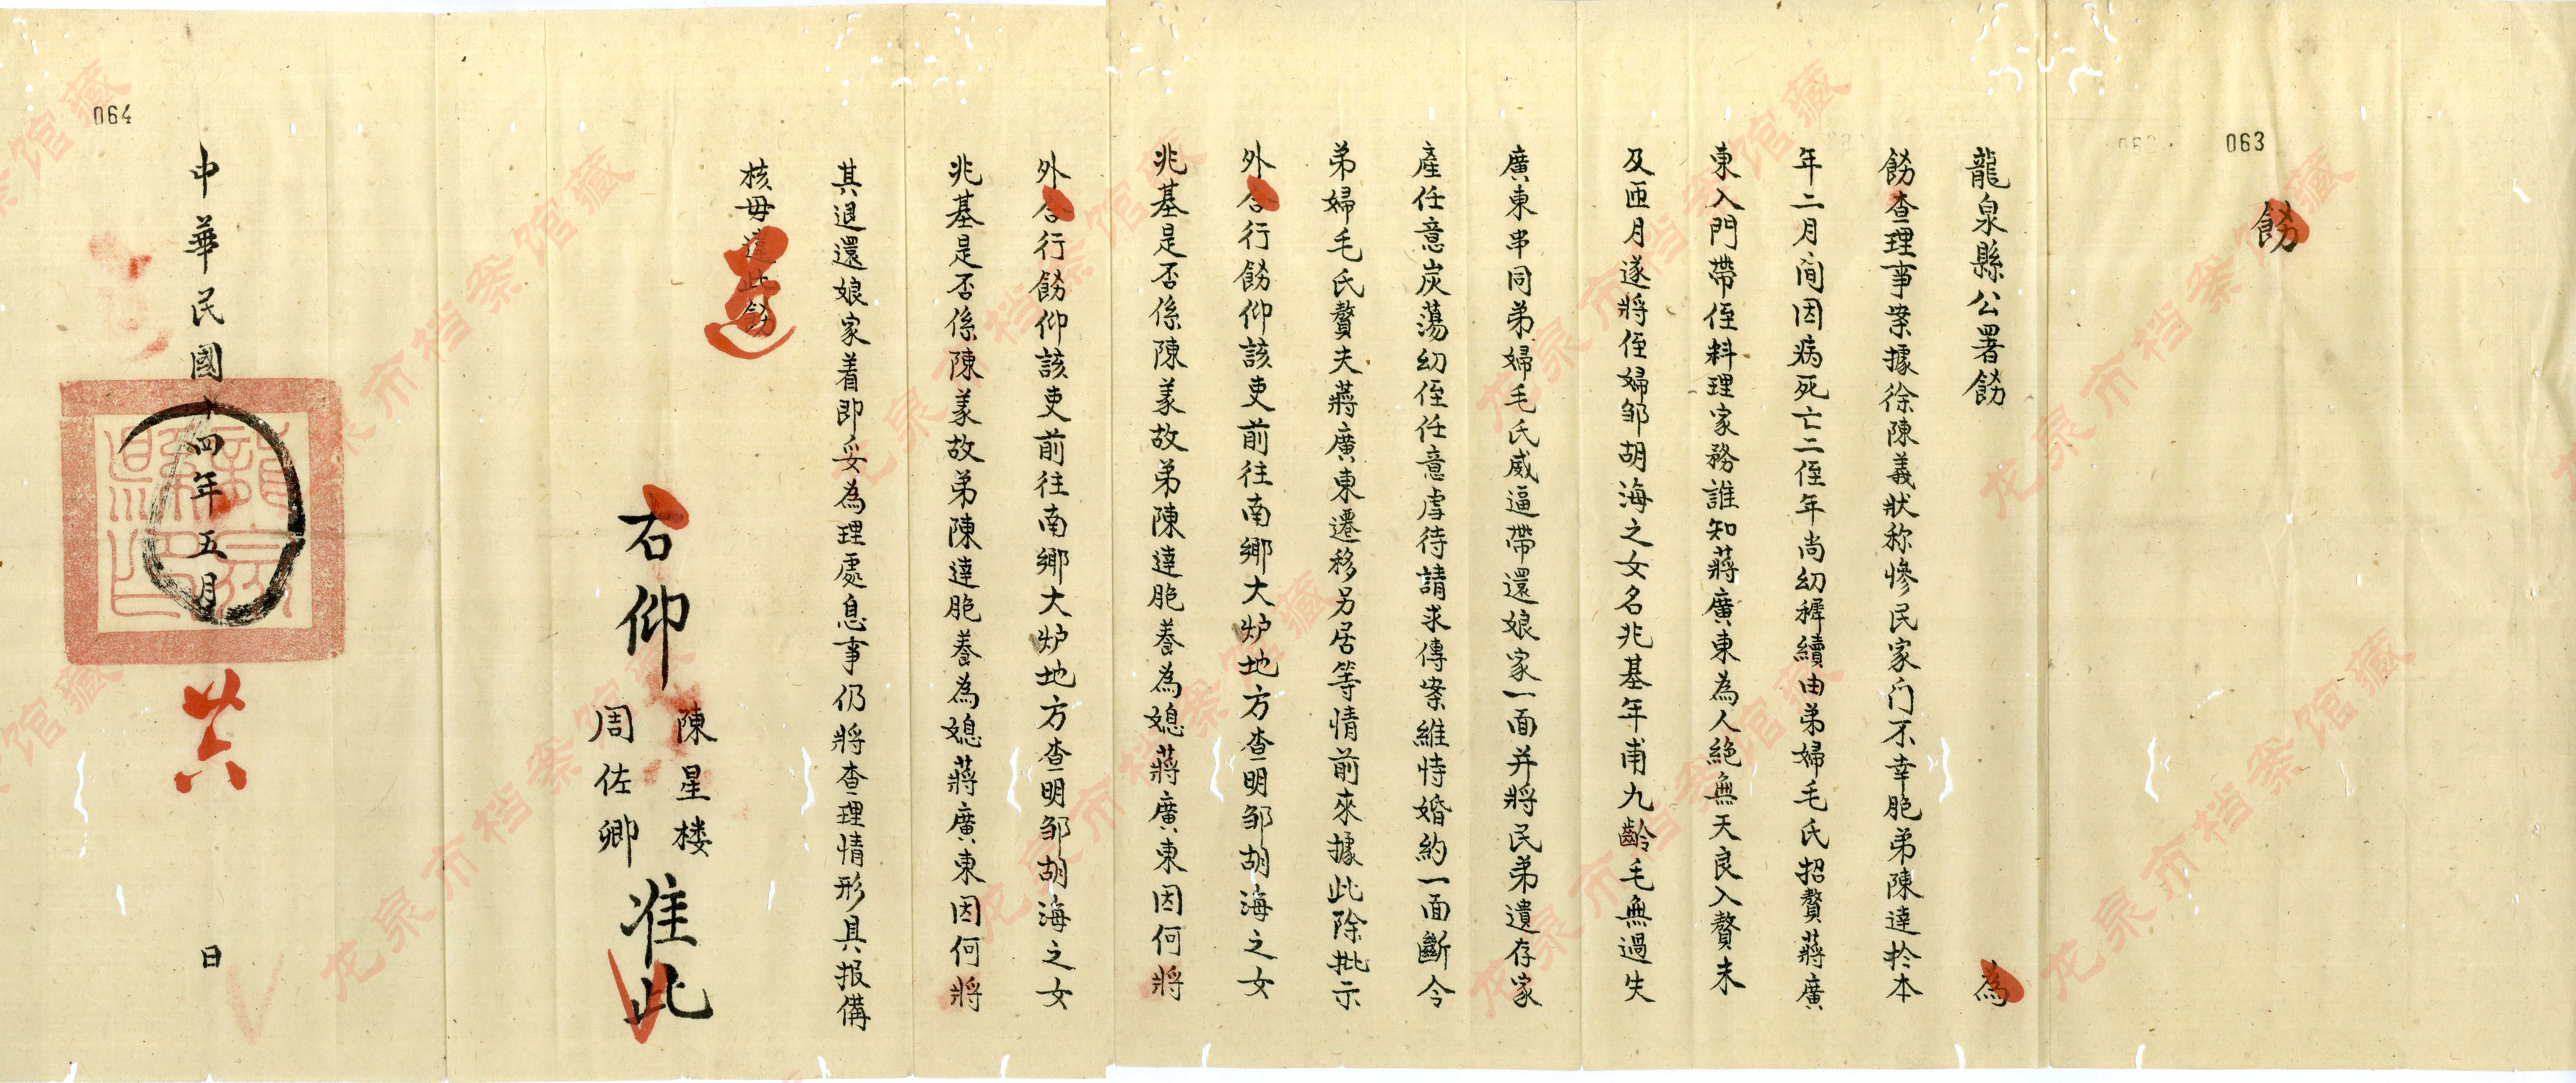 063
飭
龍泉縣公署飭 為
飭查理事案據徐陳義狀称慘民家门不幸胞弟陳達於本
年二月間因病死亡二侄年尚幼穉續由弟婦毛氏招贅蔣廣
東入門帶侄料理家務誰知蔣廣東為人絶無天良入贅未
及匝月遂將侄婦邹胡海之女名兆基年甫九齡毛無過失
廣東串同弟婦毛氏威逼帶還娘家一面并將民弟遺存家
產任意炭蕩幼侄任意虐待請求傳案維恃婚約一面斷令
弟婦毛氏贅夫蔣廣東遷移另居等情前來據此除批示
外合行飭仰該吏前往南鄉大炉地方查明邹胡海之女
兆基是否係陳義故弟陳達胞養為媳蔣廣東因何將
外合行飭仰該吏前往南鄉大炉地方查明邹胡海之女
兆基是否係陳義故弟陳達胞養為媳蔣廣東因何將
其退還娘家着即妥為理處息事仍將查理情形具报備
核毋違此飭
遵
右仰 陳星楼 周佐卿 准此
中華民國十四年五月 廿六 日
龍泉縣印
064
龙泉市档案馆藏